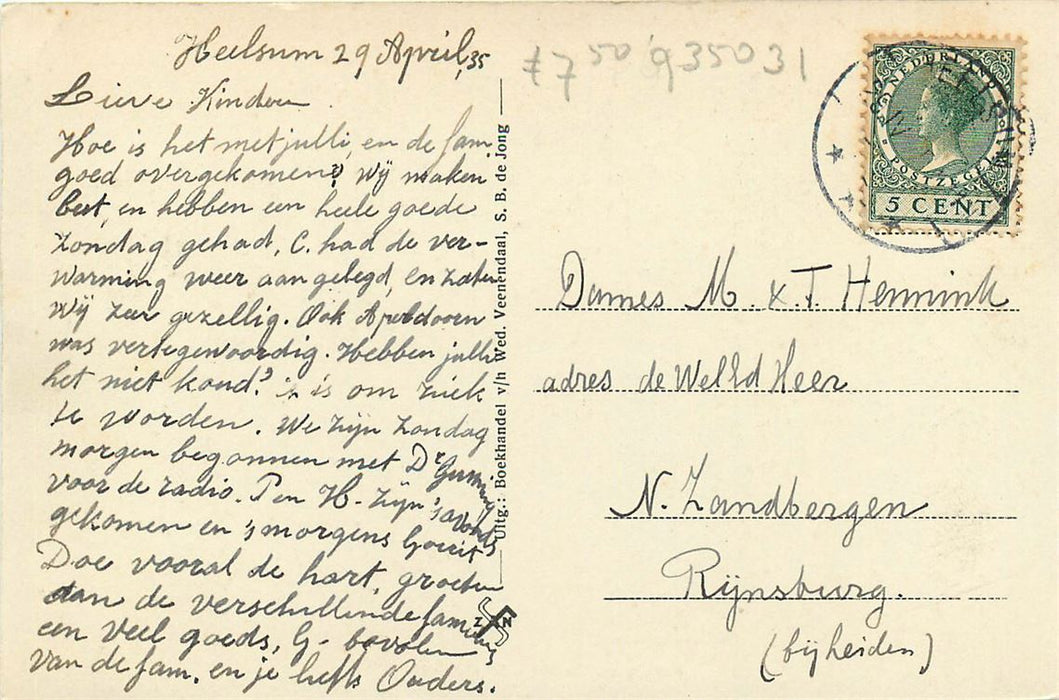 Heelsum 29 April 35
Lieve Kinderen
Hoe is het met julli, en de fam
goed overgekomen? Wij maken
best, en hebben een heele goede
Zondag gehad, C. had de ver-
warming weer aangelegd, en zaten
wij zeer gezellig. Ook Apeldoorn
was vertegenwoordig. Hebben julli
het niet koud? 't is om ziek
te worden. We zijn Zondag
morgen begonnen met Dr Gunning
voor de radio. P en H. zijn 's avonds
gekomen en 's morgens Gerrit
Doe vooral de hart. groeten
aan de verschillende families
een veel goeds, G- bevolen
van de fam. en je liefh Ouders.
Uitg.: Boekhandel v/h Wed. Veenendaal, S. B. de Jong
Z N
£7 50 935031
NEDERLAND
POSTZEGEL
5 CENT
HEELSUM
Dames M. & T. Hennink
adres de WelEd Heer
N. Zandbergen
Rijnsburg.
(bij Leiden)